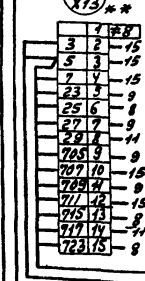 X13 **
1 *8
3 2 15
5 3 15
7 4 15
23 5 9
25 6 8
27 7 9
29 8 11
705 9 9
707 10 15
709 11 9
711 12 15
715 13 8
717 14 11
723 15 8